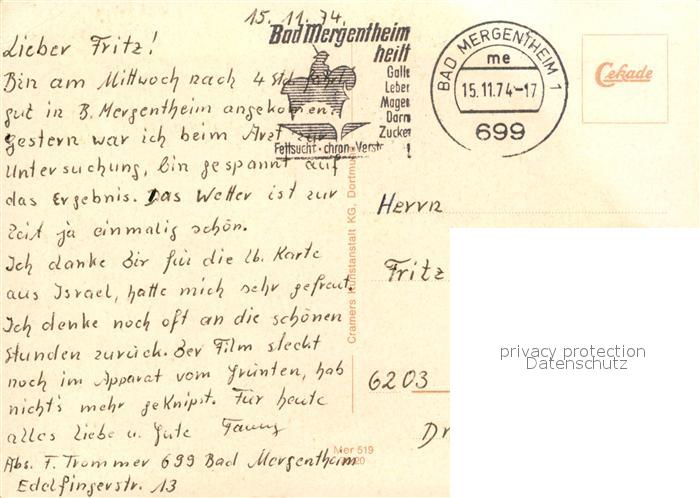 15. 11. 74.
Lieber Fritz!
Bin am Mittwoch nach 4 Std. Fahrt
gut in B. Mergentheim angekommen.
Gestern war ich beim Arzt zur
Untersuchung, bin gespannt auf
das Ergebnis. Das Wetter ist zur
Zeit ja einmalig schön.
Ich danke Dir für die lb. Karte
aus Israel, hatte mich sehr gefreut.
Ich denke noch oft an die schönen
Stunden zurück. Der Film steckt
noch im Apparat vom Grünten, hab
nichts mehr geknipst. Für heute
alles Liebe u. Gute
Abs. F. Trommer 699 Bad Mergentheim
Edelfingerstr. 13
Bad Mergentheim
heilt
Galle
Leber
Magen
Darm
Zucker
Fettsucht · chron. Verstr
BAD MERGENTHEIM 1
me
15.11.74-17
699
Cekade
Cramers Kunstanstalt KG, Dortmund
Mer 519
Herrn
Fritz
6203
privacy protection
Datenschutz